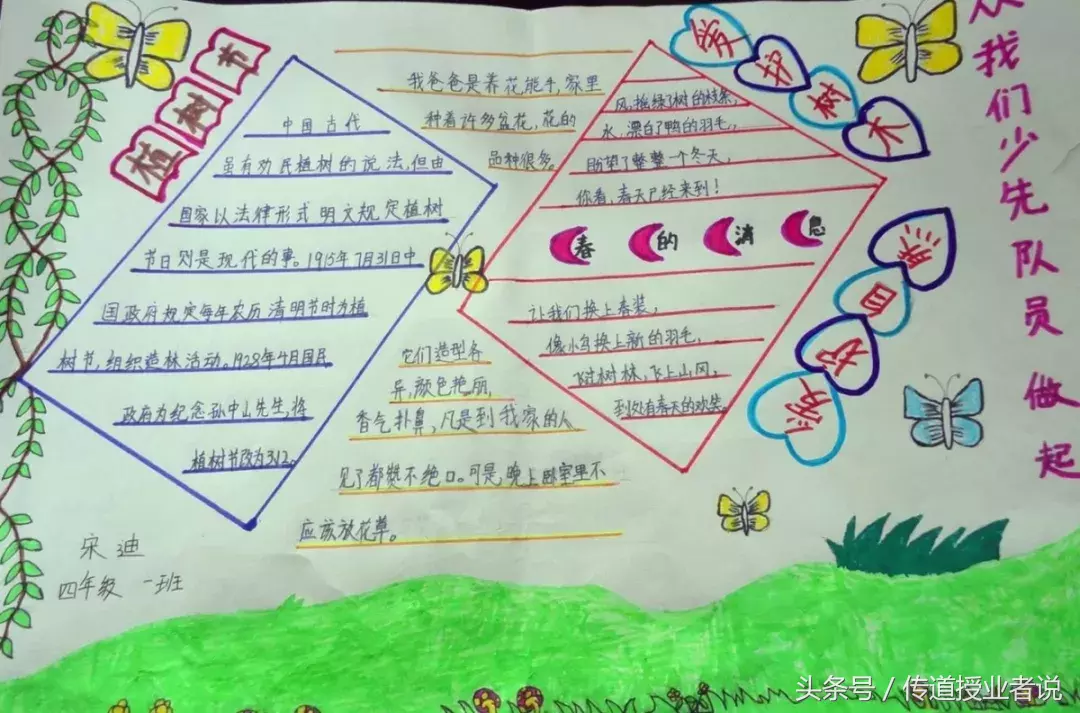 植树节
中国古代
虽有劝民植树的说法,但由
国家以法律形式明文规定植树
节日则是现代的事。1915年7月31日中
国政府规定每年农历清明节时为植
树节,组织造林活动。1928年4月国民
政府为纪念孙中山先生,将
植树节改为3.12。
宋迪
四年级 一班
我爸爸是养花能手,家里
种着许多盆花,花的
品种很多。
它们造型各
异,颜色艳丽,
香气扑鼻,凡是到我家的人
见了都赞不绝口。可是晚上卧室里不
应该放花草。
风,摇绿了树的枝条,
水,漂白了鸭的羽毛,
盼望了整整一个冬天,
你看,春天已经来到!
春的消息
让我们换上春装,
像小鸟换上新的羽毛,
飞过树林,飞上山冈,
到处有春天的欢笑。
爱护树木
爱护自然
从我们少先队员做起
头条号 / 传道授业者说